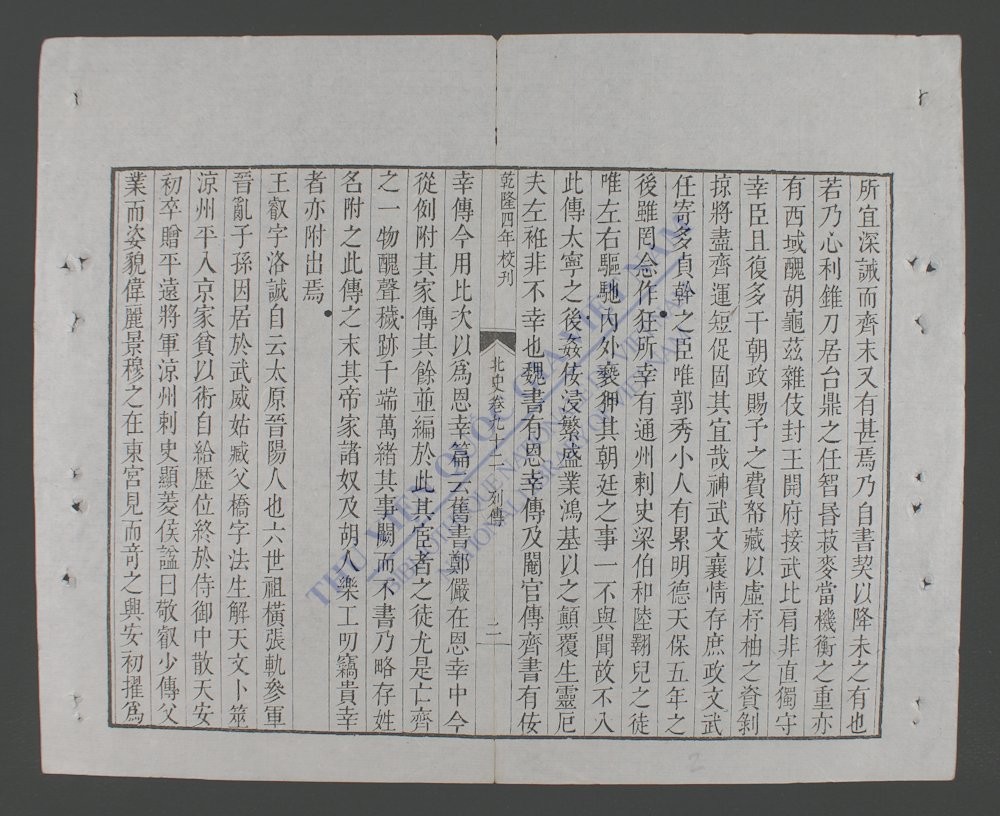 所宜深誡而齊末又有甚焉乃自書契以降未之有也
若乃心利錐刀居台鼎之任智昬菽麥當機衡之重亦
有西域醜胡龜茲雜伎封王開府接武比肩非直獨守
幸臣且復多干朝政賜予之費帑藏以虛杼柚之資剝
掠將盡齊運短促固其宜哉神武文襄情存庶政文武
任寄多貞幹之臣唯郭秀小人有累明德天保五年之
後雖罔念作狂所幸有通州刺史梁伯和陸翾兒之徒
唯左右驅馳內外褻狎其朝廷之事一不與聞故不入
此傳太寧之後姦佞浸繁盛業鴻基以之顛覆生靈厄
夫左袵非不幸也魏書有恩幸傳及閹官傳齊書有佞
乾隆四年校刊
北史卷九十二 列傳
二
幸傳今用比次以爲恩幸篇云舊書鄭儼在恩幸中今
從例附其家傳其餘並編於此其宦者之徒尤是亡齊
之一物醜聲穢跡千端萬緒其事闕而不書乃略存姓
名附之此傳之末其帝家諸奴及胡人樂工叨竊貴幸
者亦附出焉
王叡字洛誠自云太原晉陽人也六世祖橫張軌參軍
晉亂子孫因居於武威姑臧父橋字法生解天文卜筮
涼州平入京家貧以術自給歷位終於侍御中散天安
初卒贈平遠將軍涼州刺史顯菱侯諡曰敬叡少傳父
業而姿貌偉麗景穆之在東宮見而奇之興安初擢爲
THU VIEN QUOC GIA VIET NAM
BIBLIOTHEQUE NATIONALE DU VIETNAM
NATIONAL LIBRARY OF VIETNAM